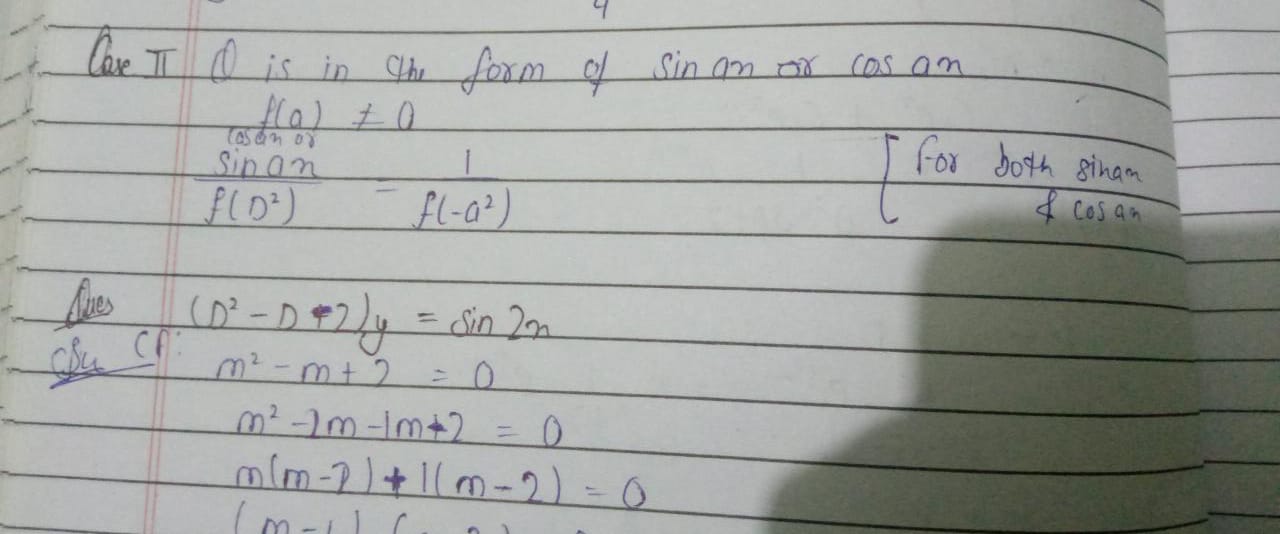 4
Case II Q is in the form of sin an or cos an
f(a) ≠ 0
cos an or
sin an / f(D²) = 1 / f(-a²) [ For both sin an
& cos an
Ques (D² - D + 2)y = sin 2n
Solu CF:
m² - m + 2 = 0
m² - 2m - 1m + 2 = 0
m(m - 2) + 1(m - 2) = 0
(m - 1) (